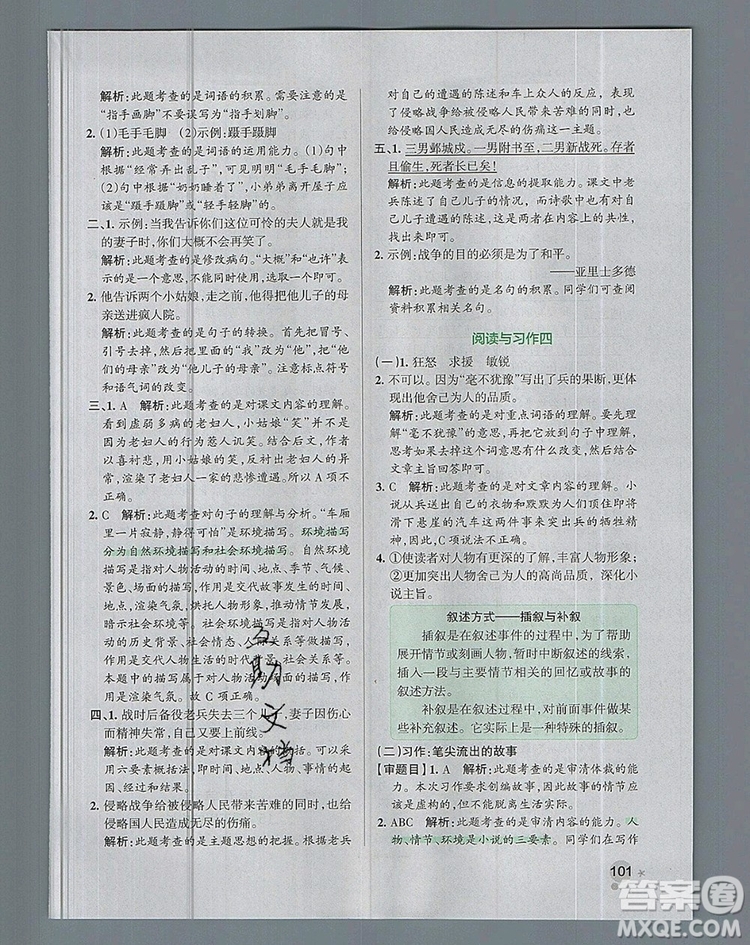 解析:此题考查的是词语的积累。需要注意的是
“指手画脚”不要误写为“指手划脚”。
2. (1)毛手毛脚 (2)示例:蹑手蹑脚
解析:此题考查的是词语的运用能力。(1)句中
根据“经常弄出乱子”,可以用“毛手毛脚”;
(2)句中根据“奶奶睡着了”,小弟弟离开屋子应该
是“蹑手蹑脚”或“轻手轻脚”。
二、1. 示例:当我告诉你们这位可怜的夫人就是我
的妻子时,你们大概不会再笑了。
解析:此题考查的是修改病句。“大概”和“也许”表
示的意思重复,选取一个即可。
2. 他告诉两个小姑娘,走之前,他得把他儿子的母
亲送进疯人院。
解析:此题考查的是句子的转换。首先把冒号、
引号变成逗号,其次“我”改为“他”,“我
们”改为“他儿子的母亲”。注意标点符号
和语气词的改变。
三、1. A 解析:此题考查的是对课文内容的理解。
看到虚弱多病的老妇人,小姑娘“笑”了,说明
老妇人的行为惹人讥笑。结合后文,作者
以喜衬悲,用小姑娘的“笑”突出了老妇人的悲
哀,渲染了车厢里悲惨的气氛。所以 A 项不
正确。
2. C 解析:此题考查对句子的理解与分析。“车厢
里一片寂静,静得可怕”是环境描写。环境描写
分为自然环境描写和社会环境描写。自然环境
描写是指对人物活动的时间、地点、季节、气候、
景色、场面的描写,作用是交代故事发生的时间、
地点,渲染气氛,烘托人物形象,推动情节发展,
暗示社会环境等。社会环境描写是指对人物活
动的历史背景、社会情态、人物关系等的描写,
作用是交代人物生活的时代背景、社会关系等。
本题中的描写是指对人物活动场面的描写,作
用是渲染气氛。所以 C 项不正确。
四、1. 战时后备役老兵失去三个儿子,妻子因伤心
而精神失常,自己又要上前线。
解析:此题考查的是对课文内容的概括。可以采
用六要素概括法,即时间、地点、人物、事情的起
因、经过和结果。
2. 侵略战争给被侵略人民带来苦难的同时,也给
侵略国人民造成无尽的伤痛。
解析:此题考查的是主题思想的把握。根据老兵
对自己的遭遇的陈述和车上众人的反应,表现了
侵略战争给被侵略人民带来苦难的同时,也给
侵略国人民造成无尽的伤痛这一主题。
五、1. 三男邺城戍。一男附书至,二男新战死。存者
且偷生,死者长已矣!
解析:此题考查的是信息的提取能力。课文中老
兵陈述了自己儿子的情况,而诗歌中也有对自
己儿子遭遇的陈述,根据内容上的共性,
找出来即可。
2. 示例:战争的目的必须是为了和平。
——亚里士多德
解析:此题考查的是名句的积累。同学们可查阅
资料积累相关名句。
阅读与习作四
(一)1. 狂怒 求援 敏锐
2. 不可以。因为“毫不犹豫”写出了兵的果断,更体
现出他舍己为人的品质。
解析:此题考查的是对重点词语的理解。要先理
解“毫不犹豫”的意思,再放到句子中理解,最后
思考去掉后句子的意思有什么改变,结合
文章主旨回答即可。
3. C 解析:此题考查的是对文章内容的理解。小
说从士兵送出自己的衣物和默默为人们挡住将
滑下悬崖的汽车这两方面突出士兵的牺牲精
神,因此,C 项说法不正确。
4. ①使读者对人物有更深的了解,丰富人物形象;
②更能突出人物舍己为人的高尚品质,深化小
说主旨。
叙述方式——插叙与补叙
插叙是在叙述事件的过程中,为了帮助
展开情节或刻画人物,暂时中断叙述的线索,
插入一段与主要情节相关的回忆或故事的叙
述方法。
补叙是在叙述过程中,对前面事件做某
些补充叙述。它实际上是一种特殊的插叙。
(二)习作:笔尖流出的故事
【审题目】1. A 解析:此题考查的是审清体裁的能
力。本次习作要求创编故事,因此在写作时情节
应该是虚构的,但不能脱离生活实际。
2. ABC 解析:此题考查的是审清内容的能力。人
物、情节、环境是小说的三要素。同学们在写作
101
互助文档
答案圈
MXQE.COM